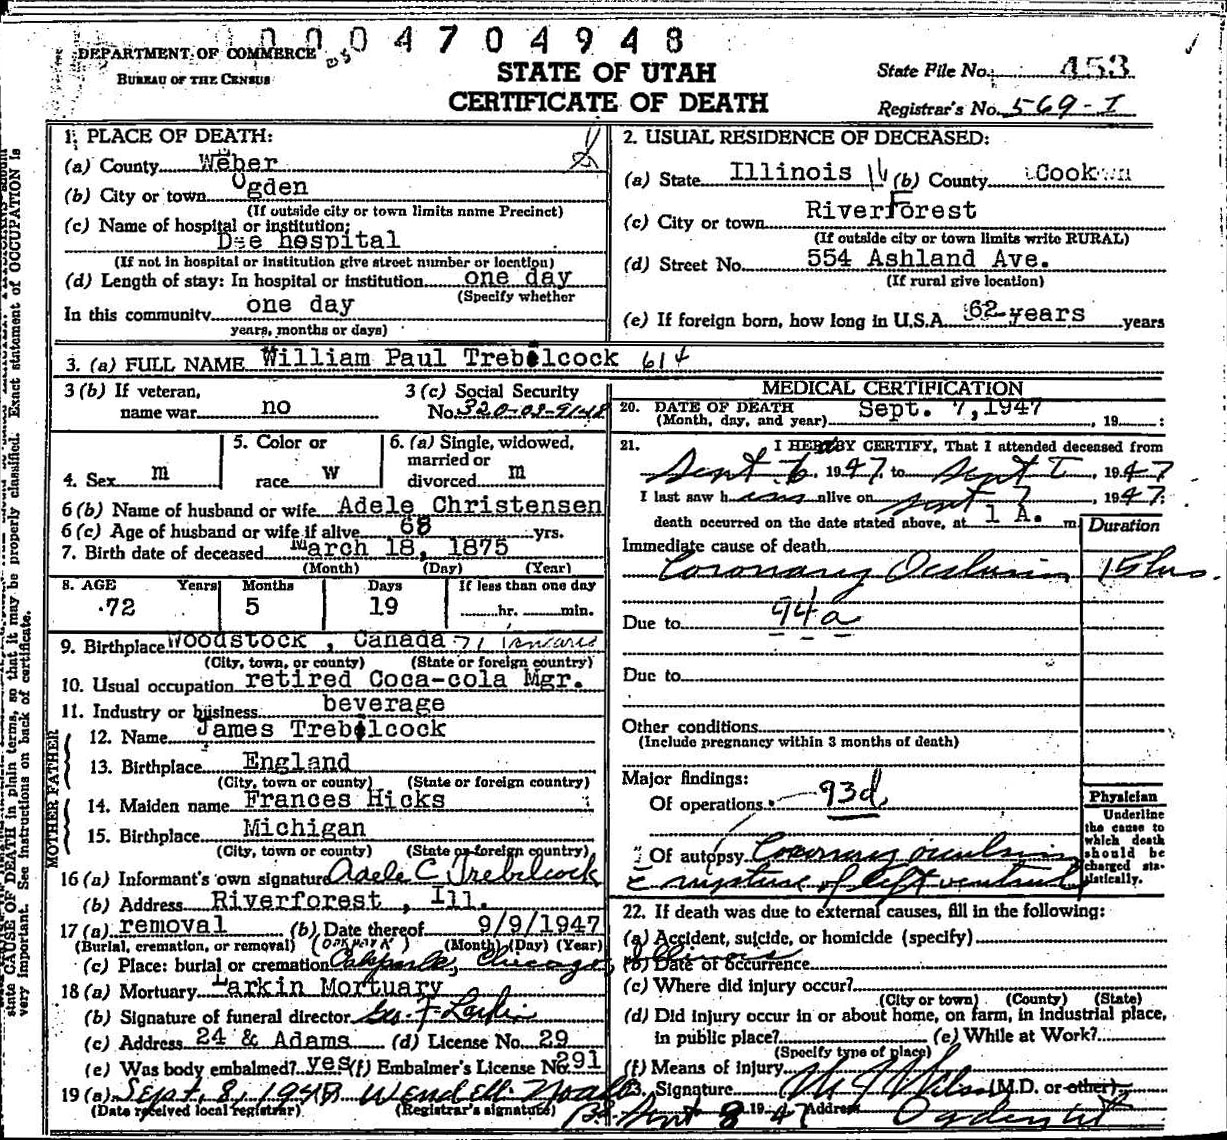 0004704948
DEPARTMENT OF COMMERCE
BUREAU OF THE CENSUS
STATE OF UTAH
CERTIFICATE OF DEATH
State File No. 453
Registrar's No. 569-I
1. PLACE OF DEATH:
(a) County Weber
(b) City or town Ogden
(If outside city or town limits name Precinct)
(c) Name of hospital or institution:
Dee hospital
(If not in hospital or institution give street number or location)
(d) Length of stay: In hospital or institution one day
(Specify whether
In this community one day
years, months or days)
2. USUAL RESIDENCE OF DECEASED:
(a) State Illinois (b) County Cook
(c) City or town RiverForest
(If outside city or town limits write RURAL)
(d) Street No. 554 Ashland Ave.
(If rural give location)
(e) If foreign born, how long in U.S.A. 62 years years
3. (a) FULL NAME William Paul Trebilcock 614
3 (b) If veteran, name war no
3 (c) Social Security No. 320-03-9148
4. Sex m
5. Color or race w
6. (a) Single, widowed, married or divorced m
6 (b) Name of husband or wife Adele Christensen
6 (c) Age of husband or wife if alive 68 yrs.
7. Birth date of deceased March 18, 1875
(Month) (Day) (Year)
8. AGE Years Months Days If less than one day
72 5 19 hr. min.
9. Birthplace Woodstock, Canada 71
(City, town, or county) (State or foreign country)
10. Usual occupation retired Coca-cola Mgr.
11. Industry or business beverage
FATHER
12. Name James Trebilcock
13. Birthplace England
(City, town or county) (State or foreign country)
MOTHER
14. Maiden name Frances Hicks
15. Birthplace Michigan
(City, town or county) (State or foreign country)
16 (a) Informant's own signature Adele C Trebilcock
(b) Address Riverforest, Ill.
17 (a) removal (b) Date thereof 9/9/1947
(Burial, cremation, or removal) (OAK PARK) (Month) (Day) (Year)
(c) Place: burial or cremation Chicago, Illinois
18 (a) Mortuary Larkin Mortuary
(b) Signature of funeral director Geo. F. Larkin
(c) Address 24 & Adams (d) License No. 29
(e) Was body embalmed? yes (f) Embalmer's License No. 291
19 (a) Sept. 8, 1947 Wendell Noall
(Date received local registrar) (Registrar's signature)
MEDICAL CERTIFICATION
20. DATE OF DEATH Sept. 7, 1947
(Month, day, and year) , 19 :
21. I HEREBY CERTIFY, That I attended deceased from
Sept 6, 1947, to Sept 7, 1947
I last saw him alive on Sept 7, 1947.
death occurred on the date stated above, at 1 A. m.
Duration
Immediate cause of death
Coronary Occlusion 15 hrs.
Due to 94a
Due to
Other conditions
(Include pregnancy within 3 months of death)
Major findings:
Of operations 93d
Of autopsy Coronary occlusion
c rupture of left ventricle
Physician
Underline
the cause to
which death
should be
charged sta-
tistically.
22. If death was due to external causes, fill in the following:
(a) Accident, suicide, or homicide (specify)
(b) Date of occurrence
(c) Where did injury occur?
(City or town) (County) (State)
(d) Did injury occur in or about home, on farm, in industrial place,
in public place? (e) While at Work?
(Specify type of place)
(f) Means of injury
23. Signature (M.D. or other)
Sept 8 1947 Address Ogden Ut
state CAUSE OF DEATH in plain terms, so that it may be properly classified. Exact statement of OCCUPATION is
very important. See instructions on back of certificate.